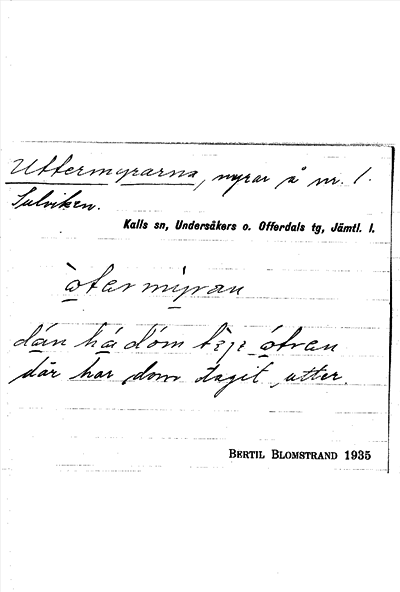 Uttermyrarna, myrar å nr. 1.
Sulviken.
Kalls sn, Undersåkers o. Offerdals tg, Jämtl. l.
òtermyran
dán há dóm tejе ótren
där har dom tagit utter.
BERTIL BLOMSTRAND 1935